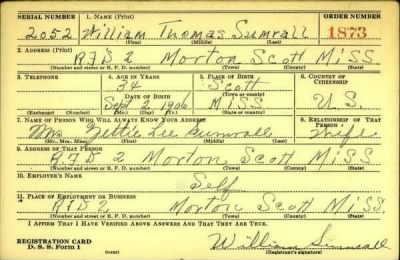 SERIAL NUMBER 1. NAME (Print) ORDER NUMBER
2052 William Thomas Sumrall 1873
(First) (Middle) (Last)
2. ADDRESS (Print)
RFD 2 Morton Scott Miss
(Number and street or R. F. D. number) (Town) (County) (State)
3. TELEPHONE 4. AGE IN YEARS 5. PLACE OF BIRTH 6. COUNTRY OF CITIZENSHIP
34 Scott
(Town or county)
DATE OF BIRTH
Sep 2 1906 Miss U.S.
(Exchange) (Number) (Mo.) (Day) (Yr.) (State or country)
7. NAME OF PERSON WHO WILL ALWAYS KNOW YOUR ADDRESS 8. RELATIONSHIP OF THAT PERSON
Mrs Lee Sumrall Wife
(Mr., Mrs., Miss) (First) (Middle) (Last)
9. ADDRESS OF THAT PERSON
RFD 2 Morton Scott Miss
(Number and street or R. F. D. number) (Town) (County) (State)
10. EMPLOYER'S NAME
Self
11. PLACE OF EMPLOYMENT OR BUSINESS
RFD 2 Morton Scott Miss.
(Number and street or R. F. D. number) (Town) (County) (State)
I AFFIRM THAT I HAVE VERIFIED ABOVE ANSWERS AND THAT THEY ARE TRUE.
REGISTRATION CARD
D. S. S. Form 1 William Sumrall
(over) (Registrant's signature)